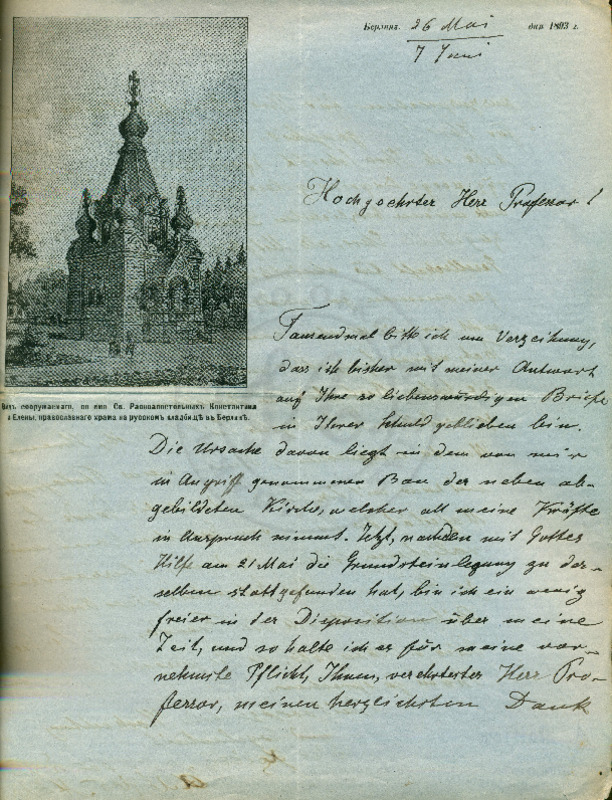 Берлинъ. 26 Mai дня 1893 г.
7 Juni
Hochgeehrter Herr Professor!
Tausendmal bitte ich um Verzeihung,
dass ich bisher mit meiner Antwort
auf Ihre so liebenswürdigen Briefe
in Ihrer Schuld geblieben bin.
Видъ сооружаемаго, во имя Св. Равноапостольныхъ Константина
и Елены, православнаго храма на русскомъ кладбищѣ въ Берлинѣ.
Die Ursache davon liegt in dem von mir
in Angriff genommenen Bau der neben ab-
gebildeten Kirche, welcher all meine Kräfte
in Anspruch nimmt. Jetzt, nachdem mit Gottes
Hilfe am 21 Mai die Grundsteinlegung zu der-
selben stattgefunden hat, bin ich ein wenig
freier in der Disposition über meine
Zeit, und so halte ich es für meine vor-
nehmste Pflicht, Ihnen, verehrtester Herr Pro-
fessor, meinen herzlichsten Dank